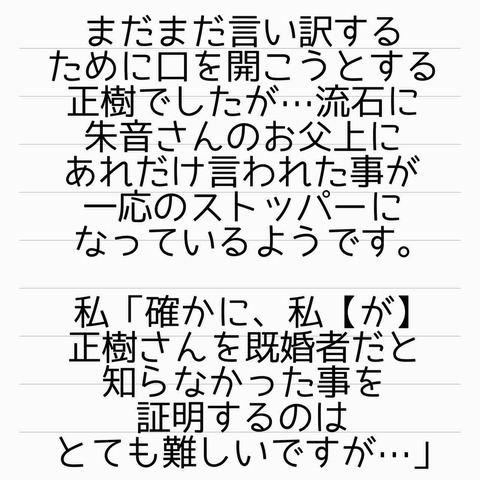 まだまだ言い訳する
ために口を開こうとする
正樹でしたが…流石に
朱音さんのお父上に
あれだけ言われた事が
一応のストッパーに
なっているようです。
私「確かに、私【が】
正樹さんを既婚者だと
知らなかった事を
証明するのは
とても難しいですが…」